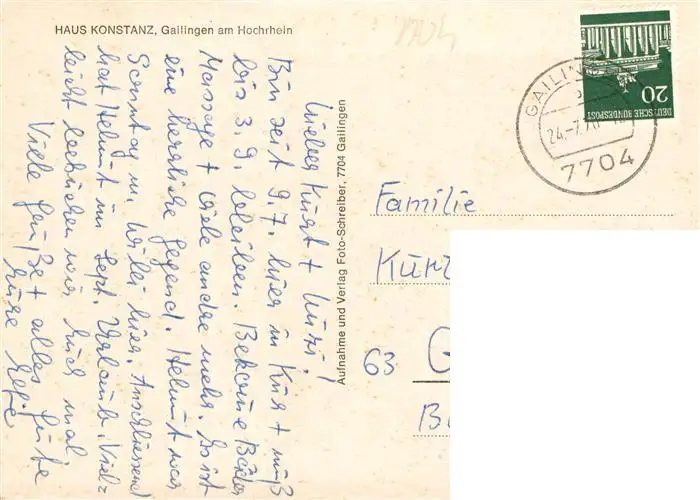 HAUS KONSTANZ, Gailingen am Hochrhein
Lieber Kurt +
Bin seit 9.7. hier in Kur + muß
bis 3.9. bleiben. Bekome Bäder
Massage + viele andre mehr. Es ist
eine herrliche Gegend. Helmut war
Sonntag m. hier. Anschliessend
hat Helmut im Sept. Urlaub. Viel=
leicht besuchen wir Euch mal.
Viele Grüße + alles Gute
Eure
Aufnahme und Verlag Foto-Schreiber, 7704 Gailingen
DEUTSCHE BUNDESPOST
20
GAILIN
24.-7.70
7704
Familie
Kurt
63 G
B